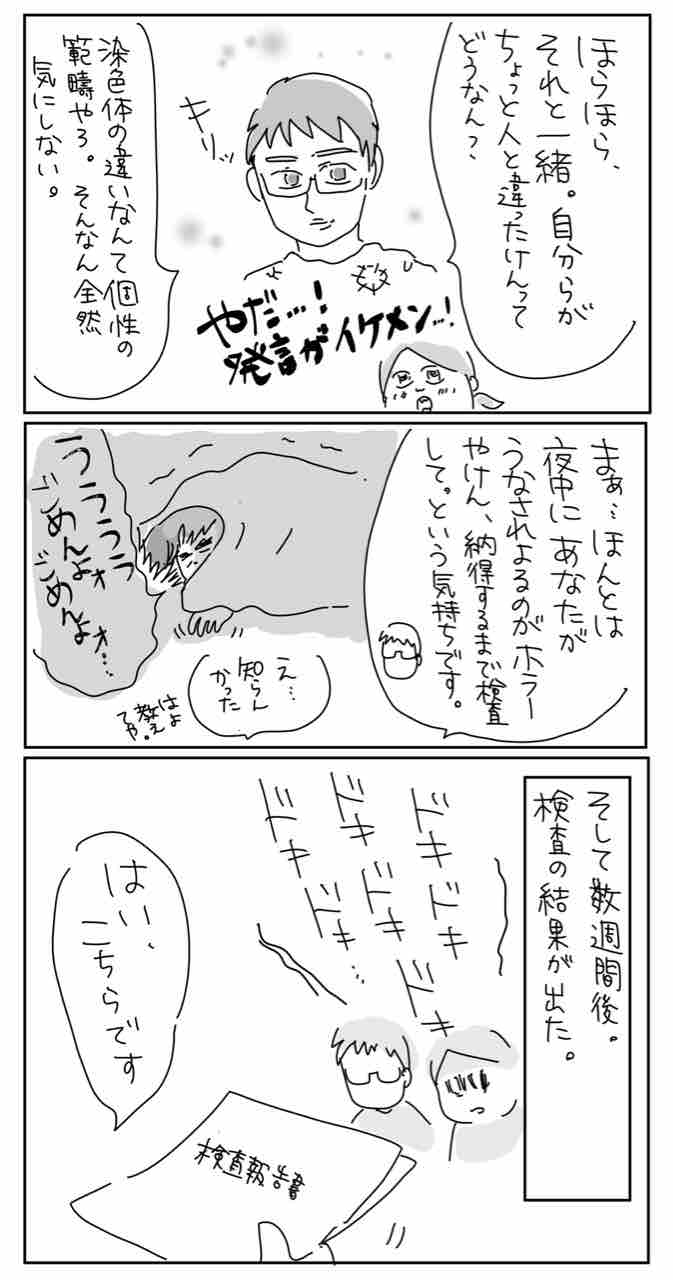 ほらほら、
それと一緒。自分らが
ちょっと人と違ったけんって
どうなん？
キリッ
染色体の違いなんて個性の
範疇やろ。そんなん全然
気にしない。
やだ…！
発言がイケメン…！
まぁ…ほんとは
夜中にあなたが
うなされよるのがホラー
やけん、納得するまで検査
して。という気持ちです。
うぅぅぅ
ごめんよォ
ごめんよォ…
え…
知らん
かった
はよ
教え
てや。
そして数週間後。
検査の結果が出た。
ドキドキドキ
ドキドキ
ドキドキ…
はい、
こちらです
検査報告書